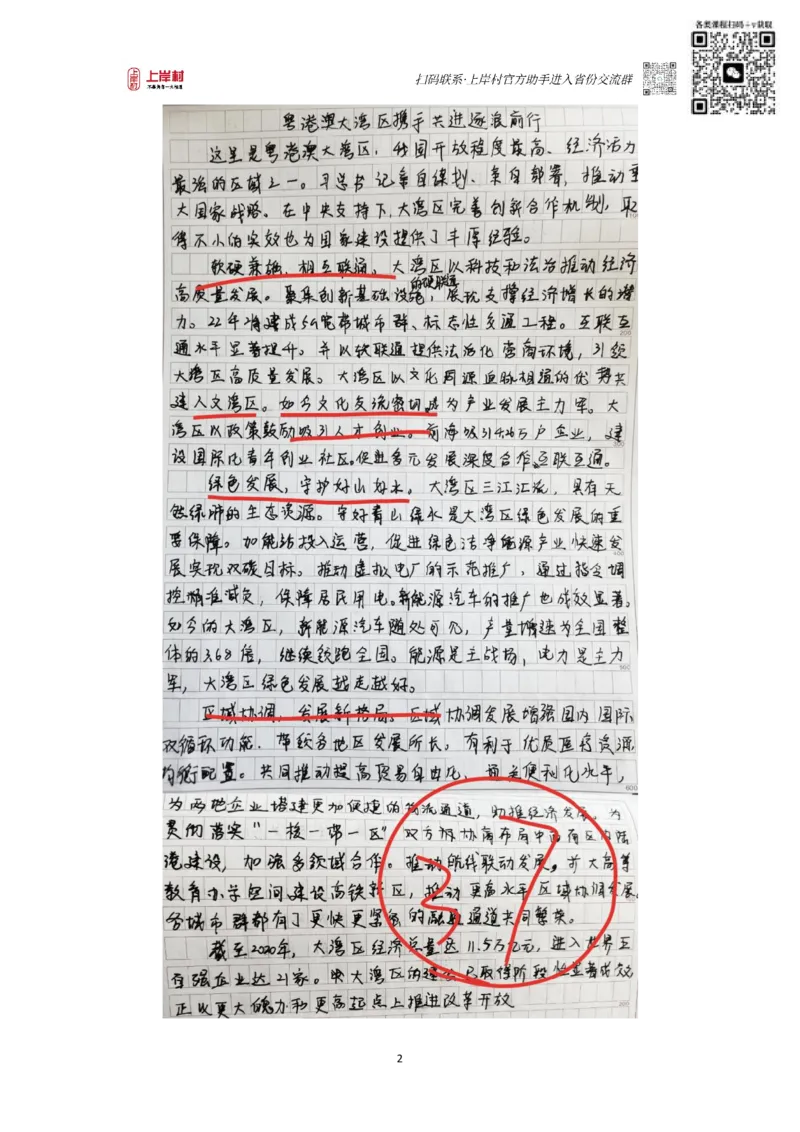 各类课程扫码+v获取
上岸村
扫码联系·上岸村官方助手进入省份交流群
粤港澳大湾区携手共进逐浪前行
这里是粤港澳大湾区，我国开放程度最高、经济活力
最强的区域之一。习总书记亲自谋划、亲自部署，推动重
大国家战略。在中央支持下，大湾区完善创新合作机制，取
得不小的实效也为国家建设提供了丰厚经验。
软硬兼施，相互联通。大湾区以科技和法治推动经济
高质量发展。聚集创新基础设施的硬联通，展现支撑经济增长的潜
力。22年将建成5G宽带城市群、标志性交通工程。互联互
通水平显著提升。并以软联通提供法治化营商环境，引领
大湾区高质量发展。大湾区以文化同源血脉相通的优势共
建人文湾区。如今文化交流密切，成为产业发展主力军。大
湾区以政策鼓励吸引人才创业。前海吸引426万户企业，建
设国际化青年创业社区。促进多元发展深度合作，互联互通。
绿色发展，守护好山好水。大湾区三江汇流，具有天
然绿肺的生态资源。守好青山绿水是大湾区绿色发展的重
要保障。加能站投入运营，促进绿色洁净能源产业快速发
展实现双碳目标。推动虚拟电厂的示范推广，通过指令调
控精准减负，保障居民用电。新能源汽车的推广也成效显著。
如今的大湾区，新能源汽车随处可见，产量增速为全国整
体的3.68倍，继续领跑全国。能源是主战场，电力是主力
军，大湾区绿色发展越走越好。
区域协调，发展新格局。区域协调发展增强国内国际
双循环功能，带领各地区发展所长，有利于优质医疗资源
均衡配置。共同推动提高贸易自由化，通关便利化水平，
600
为两地企业搭建更加便捷的物流通道，助推经济发展。为
贯彻落实“一核一带一区”双方将协商布局中西南区内陆
港建设，加强多领域合作。推动航线联动发展，扩大高等
教育办学空间建设高铁新区，推动更高水平区域协调发展。
各城市群都有了更快更紧密的融通通道共同繁荣。
37
截至2020年，大湾区经济总量达11.5万亿元，进入世界五
百强企业达21家。大湾区的建设已取得阶段性显著成效
正以更大魄力和更高起点上推进改革开放
2